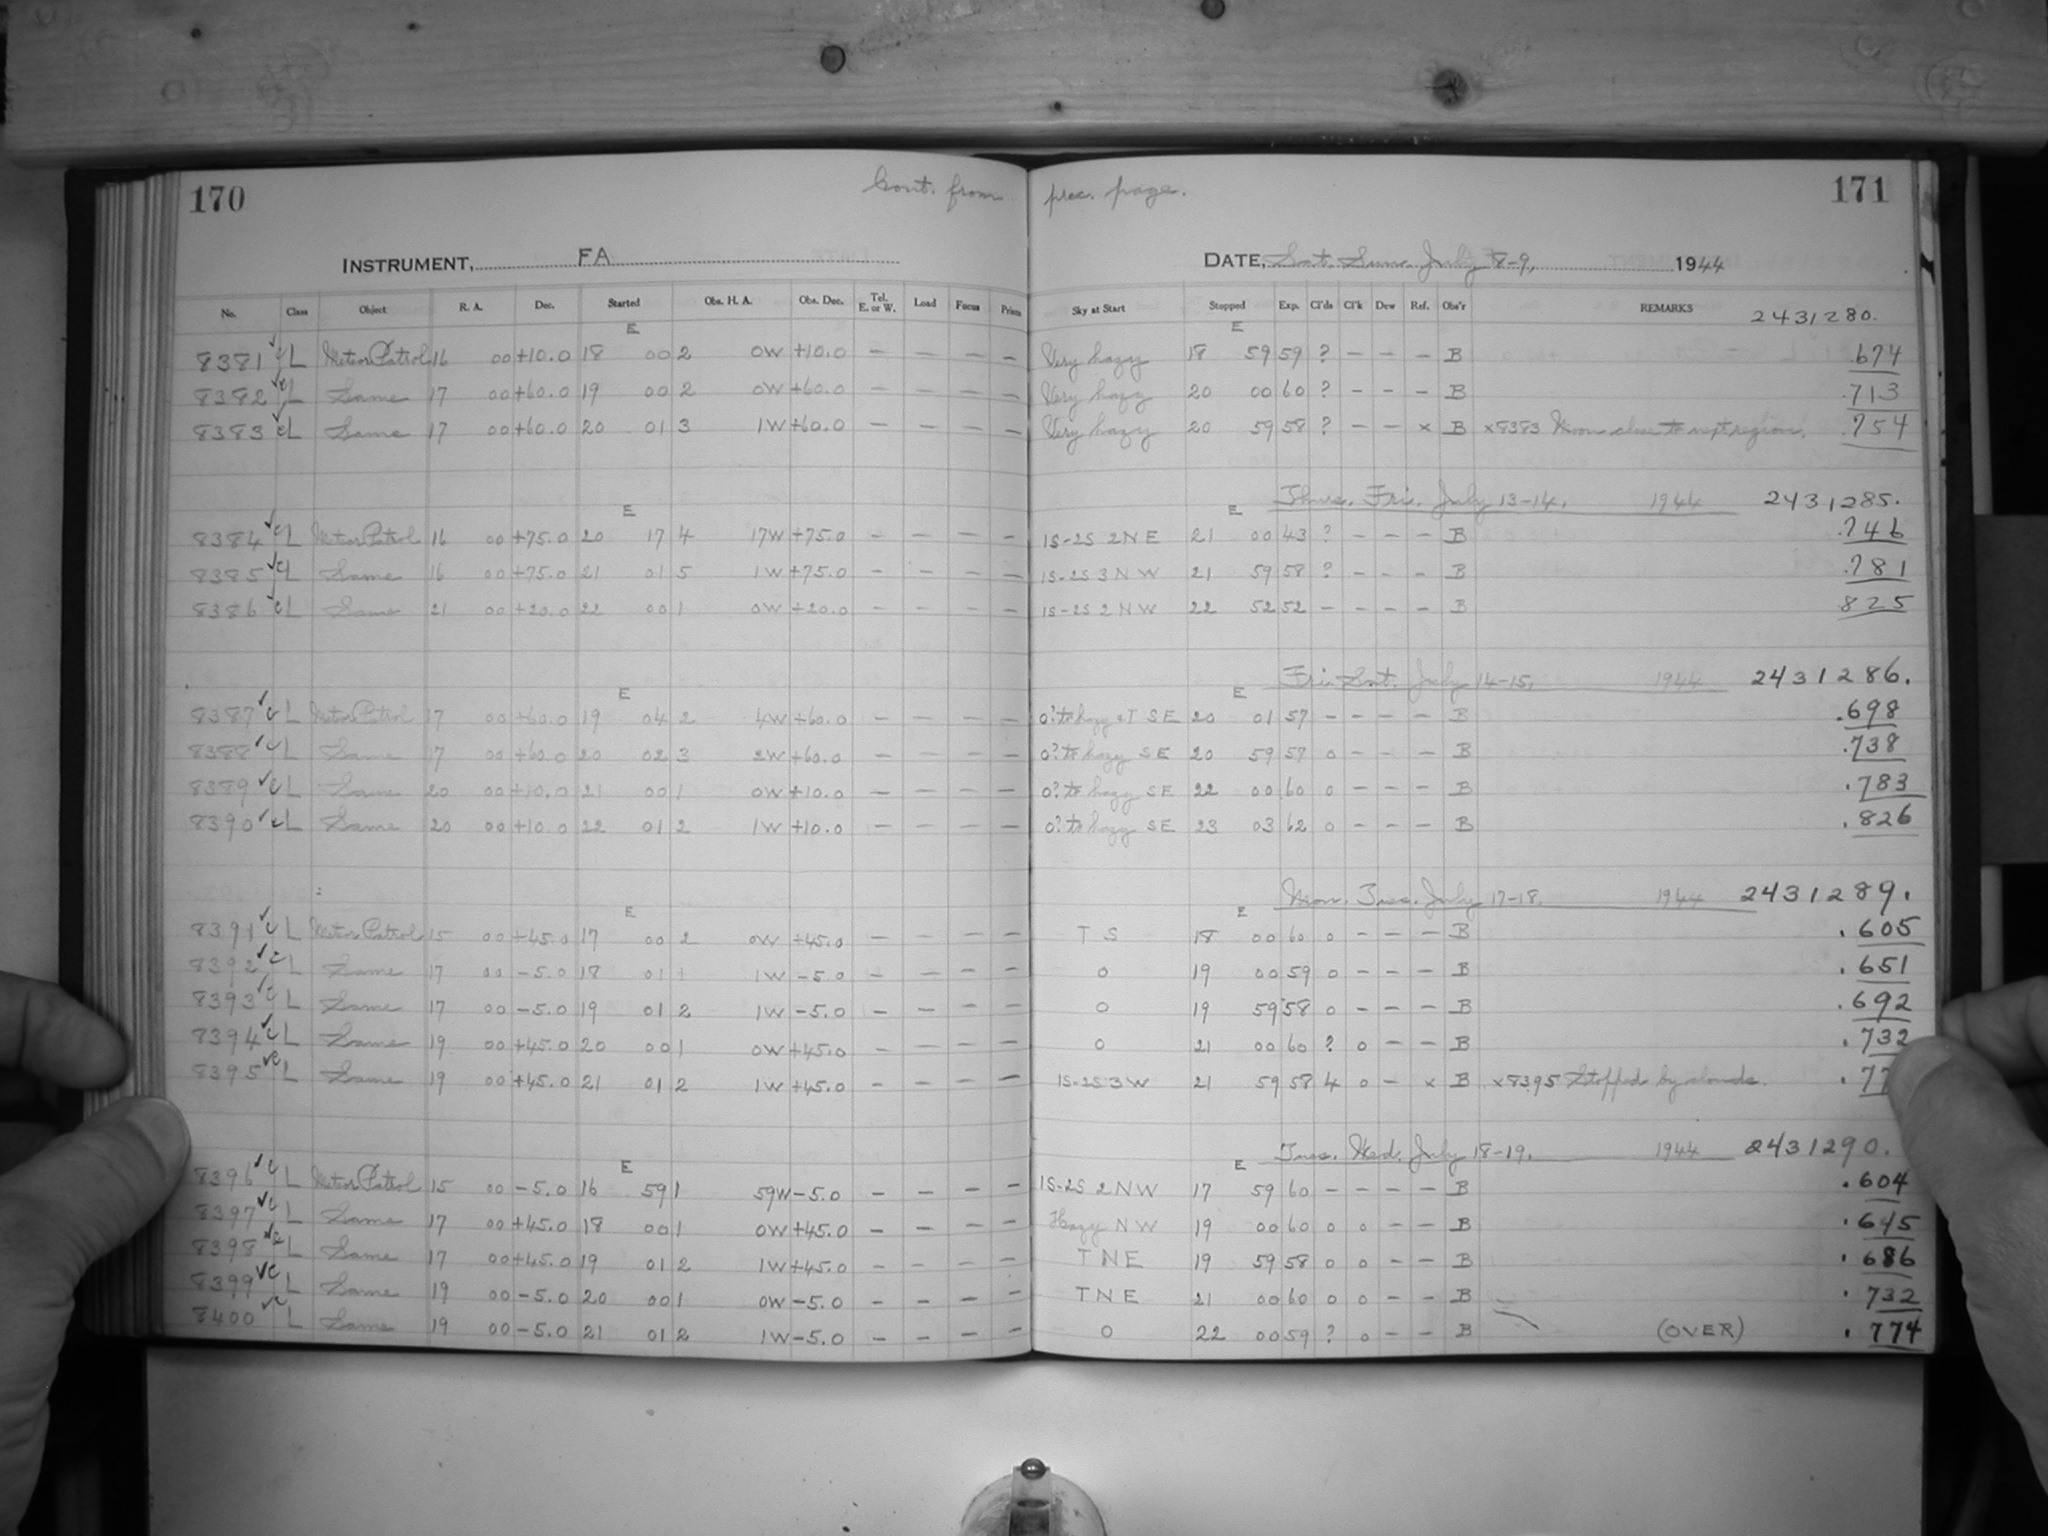 170 Cont. from prec. page. 171
INSTRUMENT, FA DATE, Sat. Sun. July 8-9, 1944
No. Class Object R. A. Dec. Started Obs. H. A. Obs. Dec. Tel. E. or W. Load Focus Prism Sky at Start Stopped Exp. Cl'ds Cl'k Dew Ref. Obs'r REMARKS 2431280.
E E
8381 ✓c L Meteor Patrol 16 00 +10.0 18 00 2 0W +10.0 – – – – Very hazy 18 59 59 ? – – – B .674
8382 ✓c L Same 17 00 +60.0 19 00 2 0W +60.0 – – – – Very hazy 20 00 60 ? – – – B .713
8383 ✓c L Same 17 00 +60.0 20 01 3 1W +60.0 – – – – Very hazy 20 59 58 ? – – x B x8383 Moon close to next region. .754
E E Thurs. Fri. July 13-14, 1944 2431285.
8384 ✓c L Meteor Patrol 16 00 +75.0 20 17 4 17W +75.0 – – – – 1S-2S 2NE 21 00 43 ? – – – B .746
8385 ✓c L Same 16 00 +75.0 21 01 5 1W +75.0 – – – – 1S-2S 3NW 21 59 58 ? – – – B .781
8386 ✓c L Same 21 00 +20.0 22 00 1 0W +20.0 – – – – 1S-2S 2NW 22 52 52 – – – – B .825
E E Fri. Sat. July 14-15, 1944 2431286.
8387 ✓c L Meteor Patrol 17 00 +60.0 19 04 2 4W +60.0 – – – – 0? to hazy & T SE 20 01 57 – – – – B .698
8388 ✓c L Same 17 00 +60.0 20 02 3 2W +60.0 – – – – 0? to hazy SE 20 59 57 0 – – – B .738
8389 ✓c L Same 20 00 +10.0 21 00 1 0W +10.0 – – – – 0? to hazy SE 22 00 60 0 – – – B .783
8390 ✓c L Same 20 00 +10.0 22 01 2 1W +10.0 – – – – 0? to hazy SE 23 03 62 0 – – – B .826
E E Mon. Tues. July 17-18, 1944 2431289.
8391 ✓c L Meteor Patrol 15 00 +45.0 17 00 2 0W +45.0 – – – – T S 18 00 60 0 – – – B .605
8392 ✓c L Same 17 00 -5.0 18 01 1W -5.0 – – – – 0 19 00 59 0 – – – B .651
8393 ✓c L Same 17 00 -5.0 19 01 2 1W -5.0 – – – – 0 19 59 58 0 – – – B .692
8394 ✓c L Same 19 00 +45.0 20 00 1 0W +45.0 – – – – 0 21 00 60 ? 0 – – B .732
8395 ✓c L Same 19 00 +45.0 21 01 2 1W +45.0 – – – – 1S-2S 3W 21 59 58 4 0 – x B x8395 Stopped by clouds. .77
E E Tues. Wed. July 18-19, 1944 2431290.
8396 ✓c L Meteor Patrol 15 00 -5.0 16 59 1 59W -5.0 – – – – 1S-2S 2NW 17 59 60 – – – – B .604
8397 ✓c L Same 17 00 +45.0 18 00 1 0W +45.0 – – – – Hazy NW 19 00 60 0 0 – – B .645
8398 ✓c L Same 17 00 +45.0 19 01 2 1W +45.0 – – – – T NE 19 59 58 0 0 – – B .686
8399 ✓c L Same 19 00 -5.0 20 00 1 0W -5.0 – – – – T NE 21 00 60 0 0 – – B .732
8400 ✓c L Same 19 00 -5.0 21 01 2 1W -5.0 – – – – 0 22 00 59 ? 0 – – B (OVER) .774